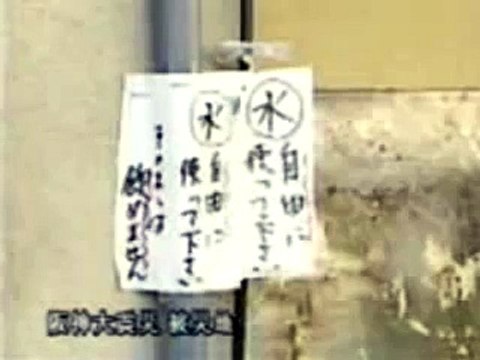 水
自由に
使って下さい
水
自由に
使って下さい
飲めません
阪神大震災 被災地